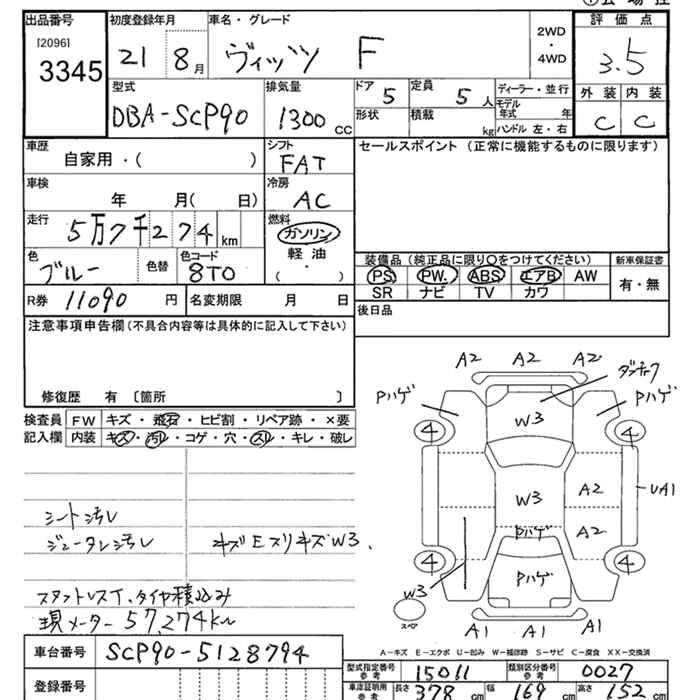 出品番号 初度登録年月 車名・グレード 評価点
[2096] 3345 21 8月 ヴィッツ F 2WD・4WD 3.5
外装 内装
C C
型式 排気量 ドア 定員 ディーラー・並行
DBA-SCP90 1300cc 5 5人 モデル年式 年
形状 積載 kg ハンドル 左・右
車歴 シフト セールスポイント (正常に機能するものに限ります)
自家用・( ) FAT
車検 冷房
年 月( 日) AC
走行 燃料
5万7千274km ガソリン
軽油
( ・ )
色 色替 色コード
ブルー 8T0
装備品 (純正品に限り○をつけてください) 新車保証書
PS PW. ABS エアB AW 有・無
SR ナビ TV カワ
R券 11090円 名変期限 月 日
後日品
注意事項申告欄(不具合内容等は具体的に記入して下さい)
修復歴 有 〔箇所 〕
検査員 FW キズ・飛石・ヒビ割・リペア跡・×要
記入欄 内装 キズ・汚レ・コゲ・穴・スレ・キレ・破レ
A2 A2 A2
Pハゲ Pハゲ
4 W3 4
W3 A2 UA1
Pハゲ A2
4 Pハゲ 4
W3
スペア
A1 A1 A1
シート汚レ
キズEスリキズW3
スタットレスT、タイヤ積込み
現メーター57,274km
A-キズ E-エクボ U-凹み W-補修跡 S-サビ C-腐食 XX-交換済
車台番号 SCP90-5128794
型式指定番号 参考 15011 類別区分番号 参考 0027
登録番号
車庫証明用 参考 長さ 378cm 幅 169cm 高さ 152cm